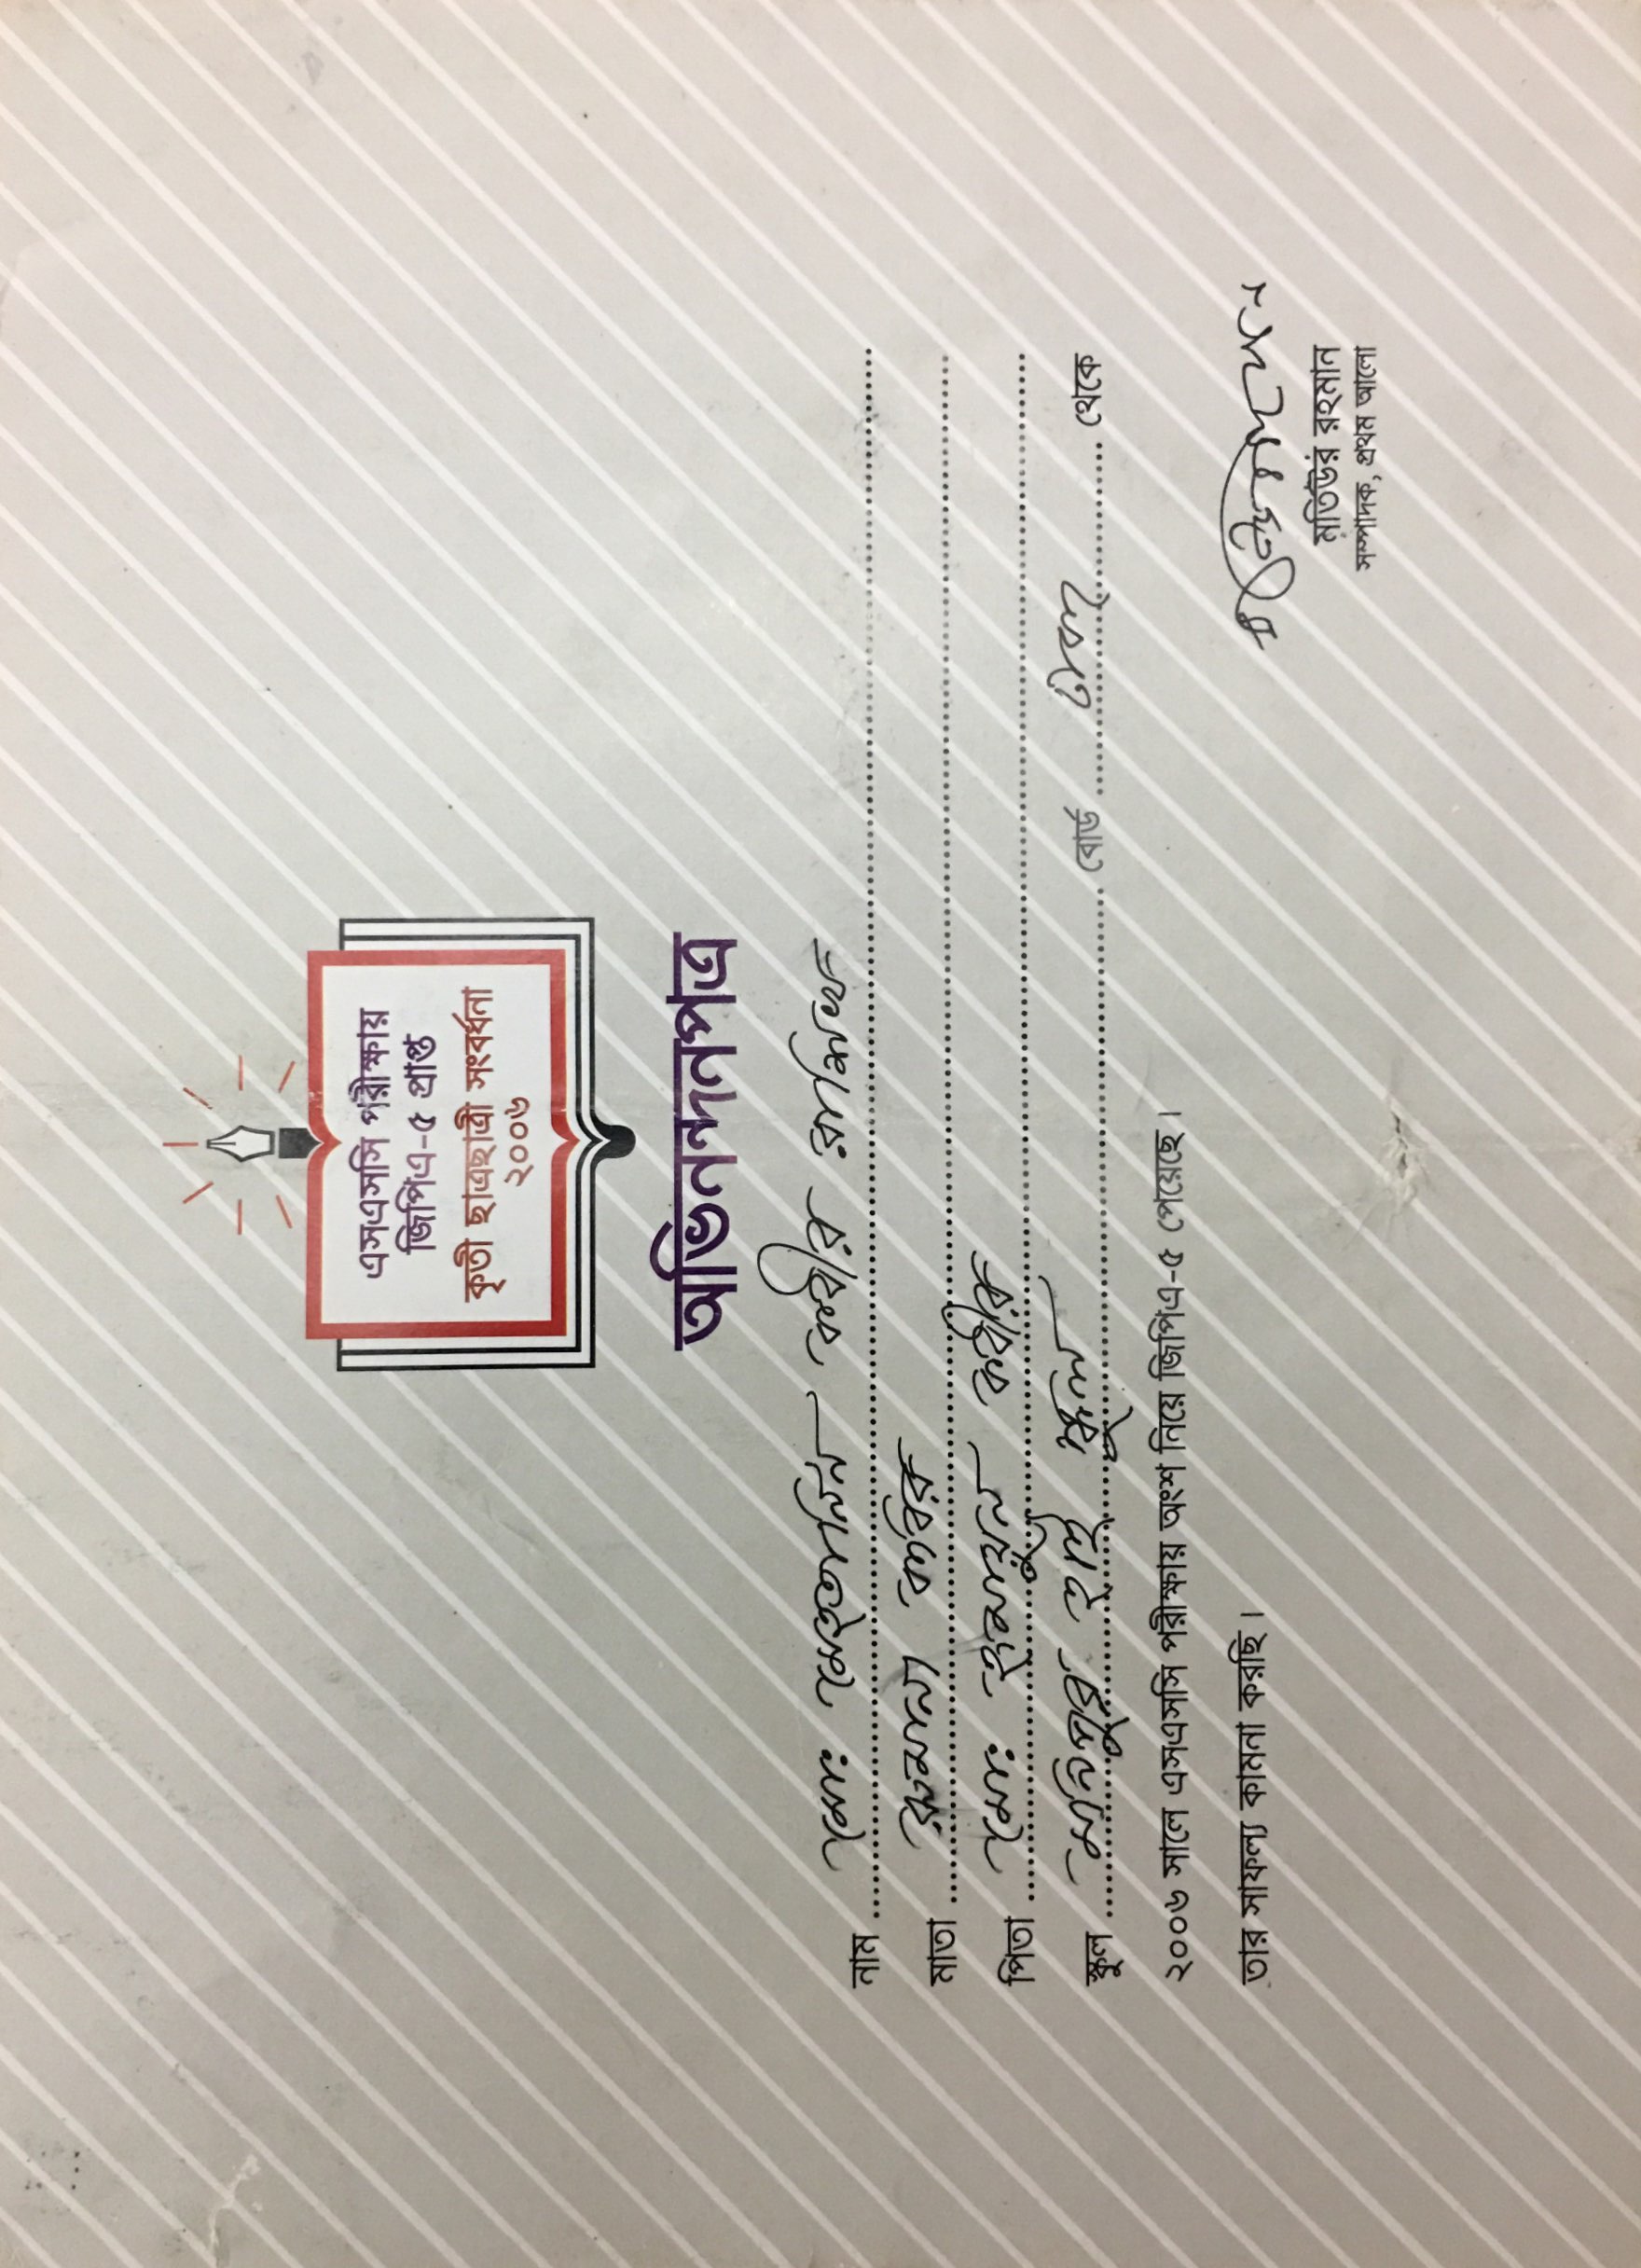 এসএসসি পরীক্ষায়
জিপিএ-৫ প্রাপ্ত
কৃতী ছাত্রছাত্রী সংবর্ধনা
২০০৬
অভিনন্দনপত্র
নাম মোঃ মেহতানিন কবীর রাশিখ
মাতা রুমানা কবির
পিতা মোঃ হুমায়ুন কবীর
স্কুল মনিপুর হাই স্কুল বোর্ড ঢাকা থেকে
২০০৬ সালে এসএসসি পরীক্ষায় অংশ নিয়ে জিপিএ-৫ পেয়েছে।
তার সাফল্য কামনা করছি।
মতিউর রহমান
সম্পাদক, প্রথম আলো